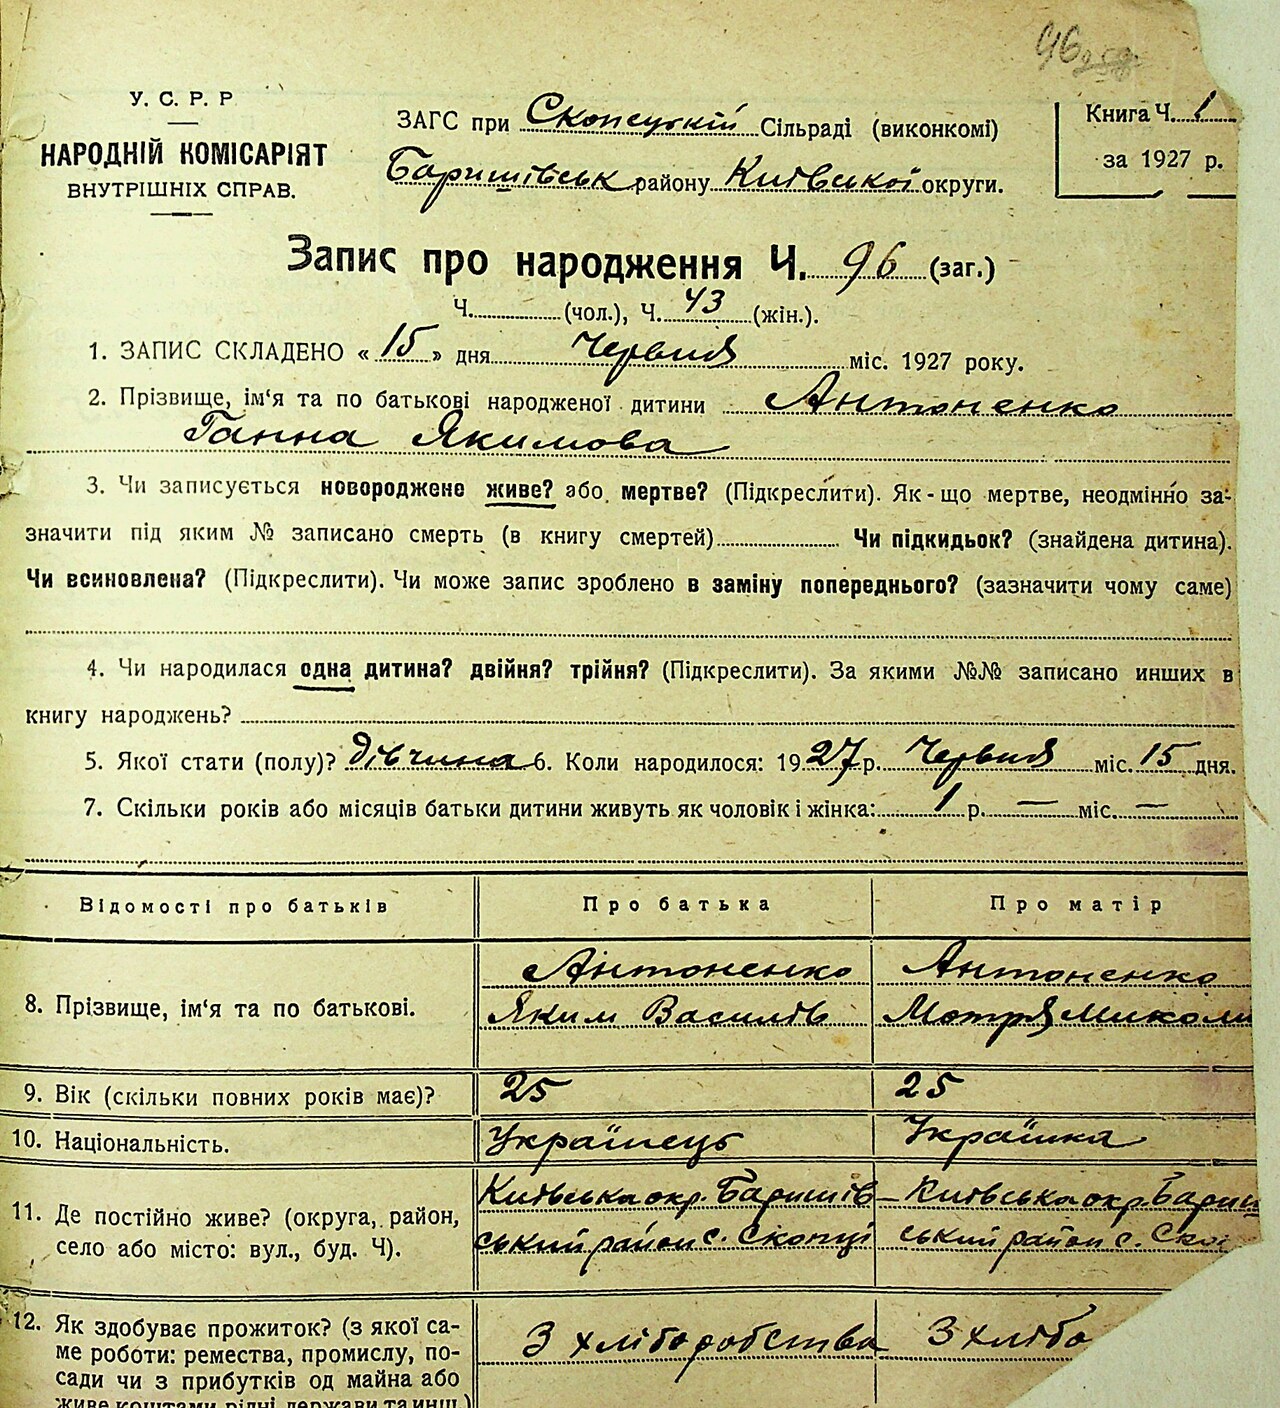 96
У. С. Р. Р
НАРОДНІЙ КОМІСАРІЯТ
ВНУТРІШНІХ СПРАВ.
ЗАГС при Скопецькій Сільраді (виконкомі)
Баришівськ району Київської округи.
Книга Ч. 1
за 1927 р.
Запис про народження Ч. 96 (заг.)
Ч. (чол.), Ч. 43 (жін.).
1. ЗАПИС СКЛАДЕНО « 15 » дня Червня міс. 1927 року.
2. Прізвище, ім‘я та по батькові народженої дитини Антоненко
Ганна Якимова
3. Чи записується новороджене живе? або мертве? (Підкреслити). Як-що мертве, неодмінно за-
значити під яким № записано смерть (в книгу смертей) Чи підкидьок? (знайдена дитина).
Чи всиновлена? (Підкреслити). Чи може запис зроблено в заміну попереднього? (зазначити чому саме)
4. Чи народилася одна дитина? двійня? трійня? (Підкреслити). За якими №№ записано инших в
книгу народжень?
5. Якої стати (полу)? дівчина 6. Коли народилося: 1927 р. Червня міс. 15 дня.
7. Скільки років або місяців батьки дитини живуть як чоловік і жінка: 1 р. — міс. —
Відомості про батьків Про батька Про матір
Антоненко Антоненко
8. Прізвище, ім‘я та по батькові. Яким Василів Мотря Миколи
9. Вік (скільки повних років має)? 25 25
10. Національність. Українець Українка
Київська окр. Баришів– Київська окр. Бариш
11. Де постійно живе? (округа, район, ський район с. Скопці ський район с. Ско
село або місто: вул., буд. Ч).
12. Як здобуває прожиток? (з якої са- З хліборобства З хлібо
ме роботи: ремества, промислу, по-
сади чи з прибутків од майна або
живе коштами рідні держави та инш.)